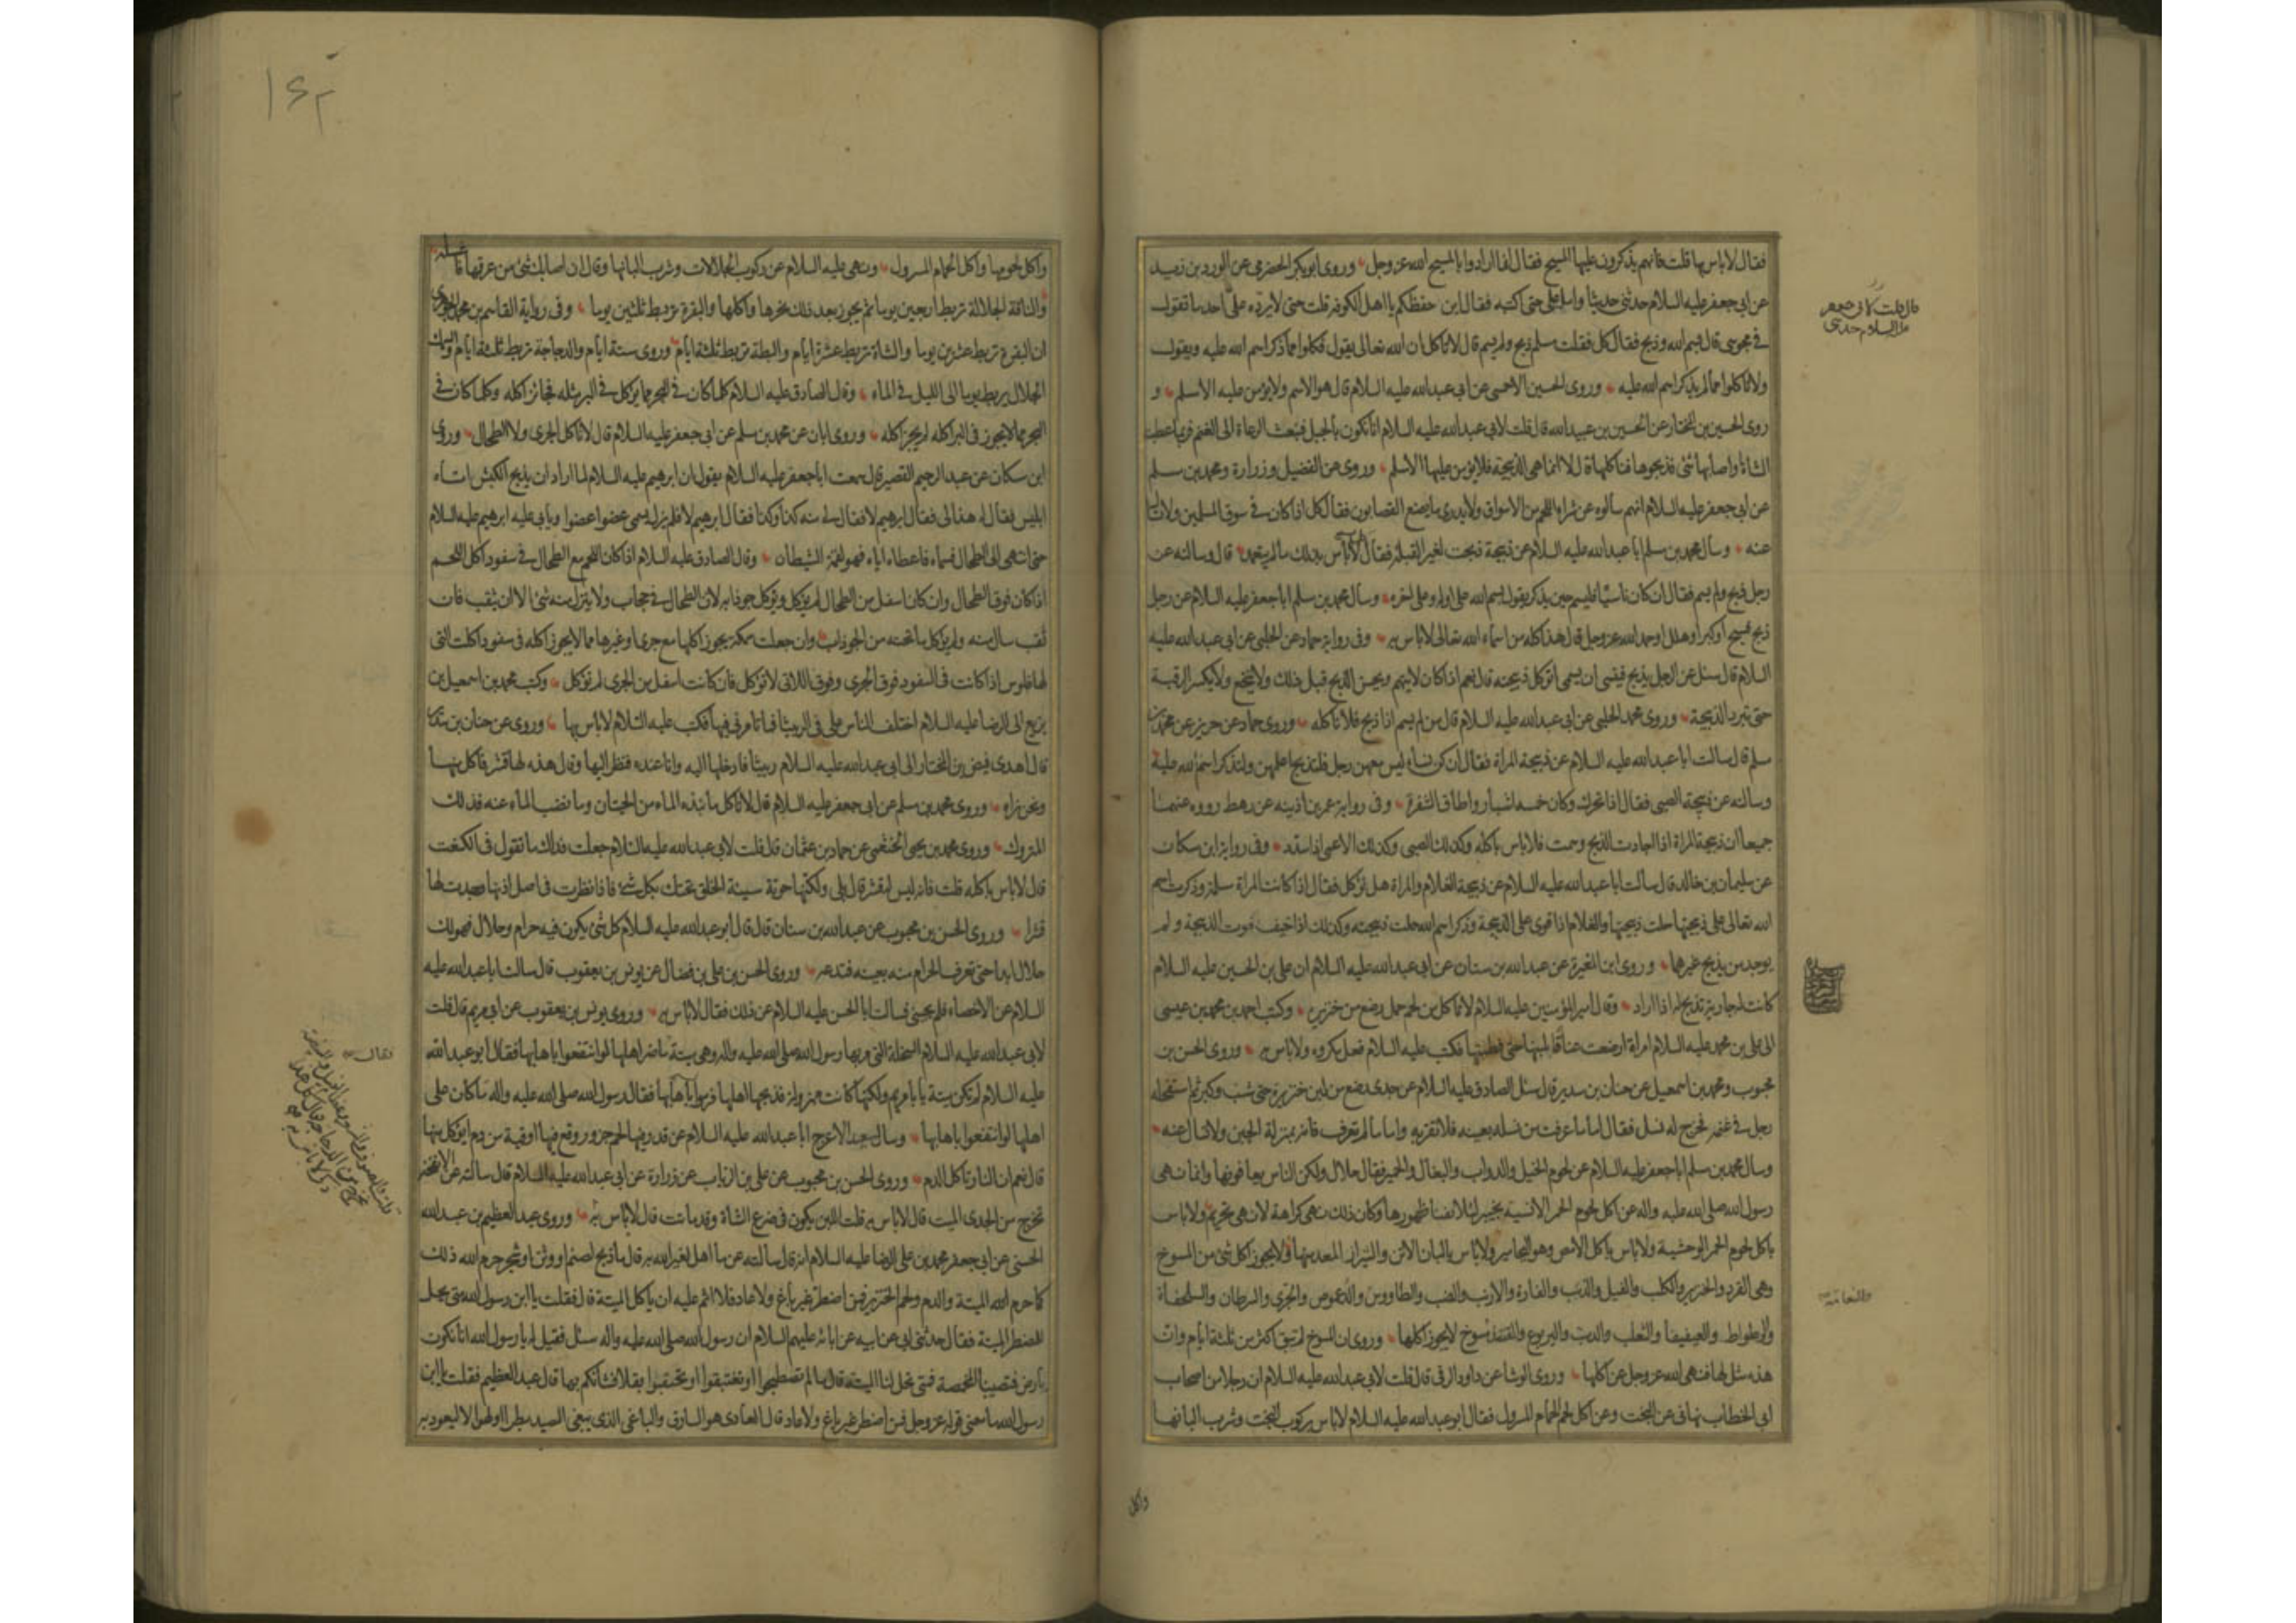 فقال لا باس بها قلت فانهم يذكرون عليها المسيح فقال انما ارادوا بالمسيح الله عز وجل وروى ابو بكر الحضرمي عن الورد بن زيد
عن ابي جعفر عليه السلام حدثني حديثا وامل علي حتى اكتبه فقال اين حفظكم يا اهل الكوفة قلت حتى لا يرده علي احد ما تقول
في مجوسي قال بسم الله وذبح فقال كل فقلت مسلم ذبح ولم يسم قال لا تاكل ان الله تعالى يقول فكلوا مما ذكر اسم الله عليه ويقول
ولا تاكلوا مما لم يذكر اسم الله عليه وروى الحسين الاحمسي عن ابي عبدالله عليه السلام قال هو الاسم ولا يؤمن عليه الا مسلم و
روى الحسين بن المختار عن الحسين بن عبيدالله قال قلت لابي عبدالله عليه السلام انا نكون بالجبل فنبعث الرعاة الى الغنم فربما عطبت
الشاة او اصابها شئ فذبحوها فناكلها قال لا انما هي الذبيحة فلا يؤمن عليها الا مسلم وروى عن الفضيل وزرارة ومحمد بن مسلم
عن ابي جعفر عليه السلام انهم سالوه عن شراء اللحم من الاسواق ولا يدرى ما يصنع القصابون فقال كل اذا كان في سوق المسلمين ولا تسال
عنه وسأل محمد بن مسلم ابا عبدالله عليه السلام عن ذبيحة ذبحت لغير القبلة فقال لا باس بذلك ما لم يتعمد قال وسالته عن
رجل ذبح ولم يسم فقال ان كان ناسيا فليسم حين يذكر يقول بسم الله على اوله وعلى اخره وسأل محمد بن مسلم ابا جعفر عليه السلام عن رجل
ذبح فسبح او كبر او هلل او حمد الله عز وجل قال هذا كله من اسماء الله تعالى لا باس به وفي رواية حماد عن الحلبي عن ابي عبدالله عليه
السلام قال سئل عن الرجل يذبح فينسى ان يسمي اتؤكل ذبيحته قال نعم اذا كان لا يتهم ويحسن الذبح قبل ذلك ولا ينخع ولا يكسر الرقبة
حتى تبرد الذبيحة وروى محمد الحلبي عن ابي عبدالله عليه السلام قال من لم يسم اذا ذبح فلا تاكله وروى حماد عن حريز عن محمد بن
مسلم قال سالت ابا عبدالله عليه السلام عن ذبيحة المراة فقال ان كن نساء ليس معهن رجل فلتذبح اعلمهن ولتذكر اسم الله عليه
وسالته عن ذبيحة الصبي فقال اذا تحرك وكان خمسة اشبار واطاق الشفرة وفي رواية عمر بن اذينة عن رهط رووه عنهما
جميعا ان ذبيحة المراة اذا اجادت الذبح وسمت فلا باس باكله وكذلك الصبي وكذلك الاعمى اذا سدد وفي رواية ابن مسكان
عن سليمان بن خالد قال سالت ابا عبدالله عليه السلام عن ذبيحة الغلام والمراة هل تؤكل فقال اذا كانت المراة مسلمة وذكرت اسم
الله تعالى على ذبيحتها حلت ذبيحتها والغلام اذا قوي على الذبيحة وذكر اسم الله حلت ذبيحته وكذلك اذا خيف فوت الذبيحة ولم
يوجد من يذبح غيرهما وروى ابن المغيرة عن عبدالله بن سنان عن ابي عبدالله عليه السلام ان علي بن الحسين عليه السلام
كانت له جارية تذبح له اذا اراد وقال امير المؤمنين عليه السلام لا تاكل من لحم حمل رضع من خنزيرة وكتب احمد بن محمد بن عيسى
الى علي بن محمد عليه السلام امراة ارضعت عناقا بلبنها حتى فطمتها فكتب عليه السلام فعل مكروه ولا باس به وروى الحسن بن
محبوب ومحمد بن اسمعيل عن حنان بن سدير قال سئل الصادق عليه السلام عن جدى رضع من لبن خنزيرة حتى شب وكبر ثم استفحله
رجل في غنمه فخرج له نسل فقال اما ما عرفت من نسله بعينه فلا تقربه واما ما لم تعرف فانه بمنزلة الجبن ولا تسال عنه
وسال محمد بن مسلم ابا جعفر عليه السلام عن لحوم الخيل والدواب والبغال والحمير فقال حلال ولكن الناس يعافونها وانما نهى
رسول الله صلى الله عليه واله عن اكل لحوم الحمر الانسية بخيبر لئلا تفنا ظهورها وكان ذلك نهي كراهة لا نهي تحريم ولا باس
باكل لحوم الحمر الوحشية ولا باس باكل الامص وهو اليحامير ولا باس بالبان الاتن والشيراز المعد منها ولا يجوز اكل شئ من المسوخ
وهي القرد والخنزير والكلب والفيل والذئب والفارة والارنب والضب والطاووس والدعموص والجري والسرطان والسلحفاة
والوطواط والعيفيفا والثعلب والدب واليربوع والقنفذ مسوخ لا يجوز اكلها وروى ان المسوخ لم تبق اكثر من ثلثة ايام وان
هذه مثل لها فنهى الله عز وجل عن اكلها وروى الوشا عن داود الرقي قال قلت لابي عبدالله عليه السلام ان رجلا من اصحاب
ابي الخطاب نهاني عن البخت وعن اكل لحم الحمام المسرول فقال ابو عبدالله عليه السلام لا باس بركوب البخت وشرب البانها
واكل
قال قلت لابي جعفر
عليه السلام حدثني
والنعامة
۱۴۳
واكل لحومها واكل الحمام المسرول ونهى عليه السلام عن ركوب الجلالات وشرب البانها وقال ان اصابك شئ من عرقها فاغسله
والناقة الجلالة تربط اربعين يوما ثم يجوز بعد ذلك نحرها واكلها والبقرة تربط ثلثين يوما وفي رواية القاسم بن محمد الجوهري
ان البقرة تربط عشرين يوما والشاة تربط عشرة ايام والبطة تربط ثلثة ايام وروى ستة ايام والدجاجة تربط ثلثة ايام والسمك
الجلال يربط يوما الى الليل في الماء وقال الصادق عليه السلام كلما كان في البحر مما يؤكل في البر مثله فجائز اكله وكلما كان في
البحر مما لا يجوز في البر اكله لم يجز اكله وروى ابان عن محمد بن مسلم عن ابي جعفر عليه السلام قال لا تاكل الجري ولا الطحال وروى
ابن مسكان عن عبد الرحيم القصير قال سمعت ابا جعفر عليه السلام يقول ان ابرهيم عليه السلام لما اراد ان يذبح الكبش اتاه
ابليس فقال له هذا لي فقال ابرهيم لا فقال لي منه كذا وكذا فقال ابرهيم لا فلم يزل يسمي عضوا عضوا ويابى عليه ابرهيم عليه السلام
حتى انتهى الى الطحال فسماه فاعطاه اياه فهو لقمة الشيطان وقال الصادق عليه السلام اذا كان اللحم مع الطحال في سفود اكل اللحم
اذا كان فوق الطحال وان كان اسفل من الطحال لم يؤكل ويؤكل جوذابه لان الطحال في حجاب ولا ينزل منه شئ الا ان يثقب فان
ثقب سال منه ولم يؤكل ما تحته من الجوذاب وان جعلت سمكة يجوز اكلها مع جري او غيرها مما لا يجوز اكله في سفود اكلت التي
لها فلوس اذا كانت في السفود فوق الجري وفوق اللاتي لا تؤكل فان كانت اسفل من الجري لم تؤكل وكتب محمد بن اسمعيل بن
بزيع الى الرضا عليه السلام اختلف الناس علي في الربيثا فما تامرني فيها فكتب عليه السلام لا باس بها وروى عن حنان بن سدير
قال اهدى فيض بن المختار الى ابي عبدالله عليه السلام ربيثا فادخلها اليه وانا عنده فنظر اليها وقال هذه لها قشر فاكل منها
ونحن نراه وروى محمد بن مسلم عن ابي جعفر عليه السلام قال لا تاكل ما نبذه الماء من الحيتان وما نضب الماء عنه فذلك
المتروك وروى محمد بن يحيى الخثعمي عن حماد بن عثمان قال قلت لابي عبدالله عليه السلام جعلت فداك ما تقول في الكنعت
قال لا باس باكله قلت فانه ليس له قشر قال بلى ولكنها حوتة سيئة الخلق تحتك بكل شئ فاذا نظرت في اصل اذنها وجدت لها
قشرا وروى الحسن بن محبوب عن عبدالله بن سنان قال قال ابو عبدالله عليه السلام كل شئ يكون فيه حرام وحلال فهو لك
حلال ابدا حتى تعرف الحرام منه بعينه فتدعه وروى الحسن بن علي بن فضال عن يونس بن يعقوب قال سالت ابا عبدالله عليه
السلام عن الاخصاء فلم يجبني فسالت ابا الحسن عليه السلام عن ذلك فقال لا باس به وروى يونس بن يعقوب عن ابي مريم قال قلت
لابي عبدالله عليه السلام السخلة التي مر بها رسول الله صلى الله عليه واله وهي ميتة ما ضر اهلها لو انتفعوا باهابها فقال ابو عبدالله
عليه السلام لم تكن ميتة يا با مريم ولكنها كانت مهزولة فذبحها اهلها فرموا بها فقال رسول الله صلى الله عليه واله ما كان على
اهلها لو انتفعوا باهابها وسال سعيد الاعرج ابا عبدالله عليه السلام عن قدر فيها لحم جزور وقع فيها اوقية من دم ايؤكل منها
قال نعم ان النار تاكل الدم وروى الحسن بن محبوب عن علي بن الرئاب عن زرارة عن ابي عبدالله عليه السلام قال سالته عن الانفحة
تخرج من الجدي الميت قال لا باس به قلت اللبن يكون في ضرع الشاة وقد ماتت قال لا باس به وروى عبد العظيم بن عبدالله
الحسني عن ابي جعفر محمد بن علي الرضا عليه السلام انه قال سالته عن ما اهل لغير الله به قال ما ذبح لصنم او وثن او شجر حرم الله ذلك
كما حرم الله الميتة والدم ولحم الخنزير فمن اضطر غير باغ ولا عاد فلا اثم عليه ان ياكل الميتة قال فقلت يا ابن رسول الله متى تحل
للمضطر الميتة فقال حدثني ابي عن ابيه عن ابائه عليهم السلام ان رسول الله صلى الله عليه واله سئل فقيل له يا رسول الله انا نكون
بارض فتصيبنا المخمصة فمتى تحل لنا الميتة قال ما لم تصطبحوا او تغتبقوا او تحتفئوا بقلا فشانكم بها قال عبد العظيم فقلت يا ابن
رسول الله ما معنى قوله عز وجل فمن اضطر غير باغ ولا عاد قال العادي هو السارق والباغي الذي يبغي الصيد بطرا او لهوا لا ليعود به
فقال